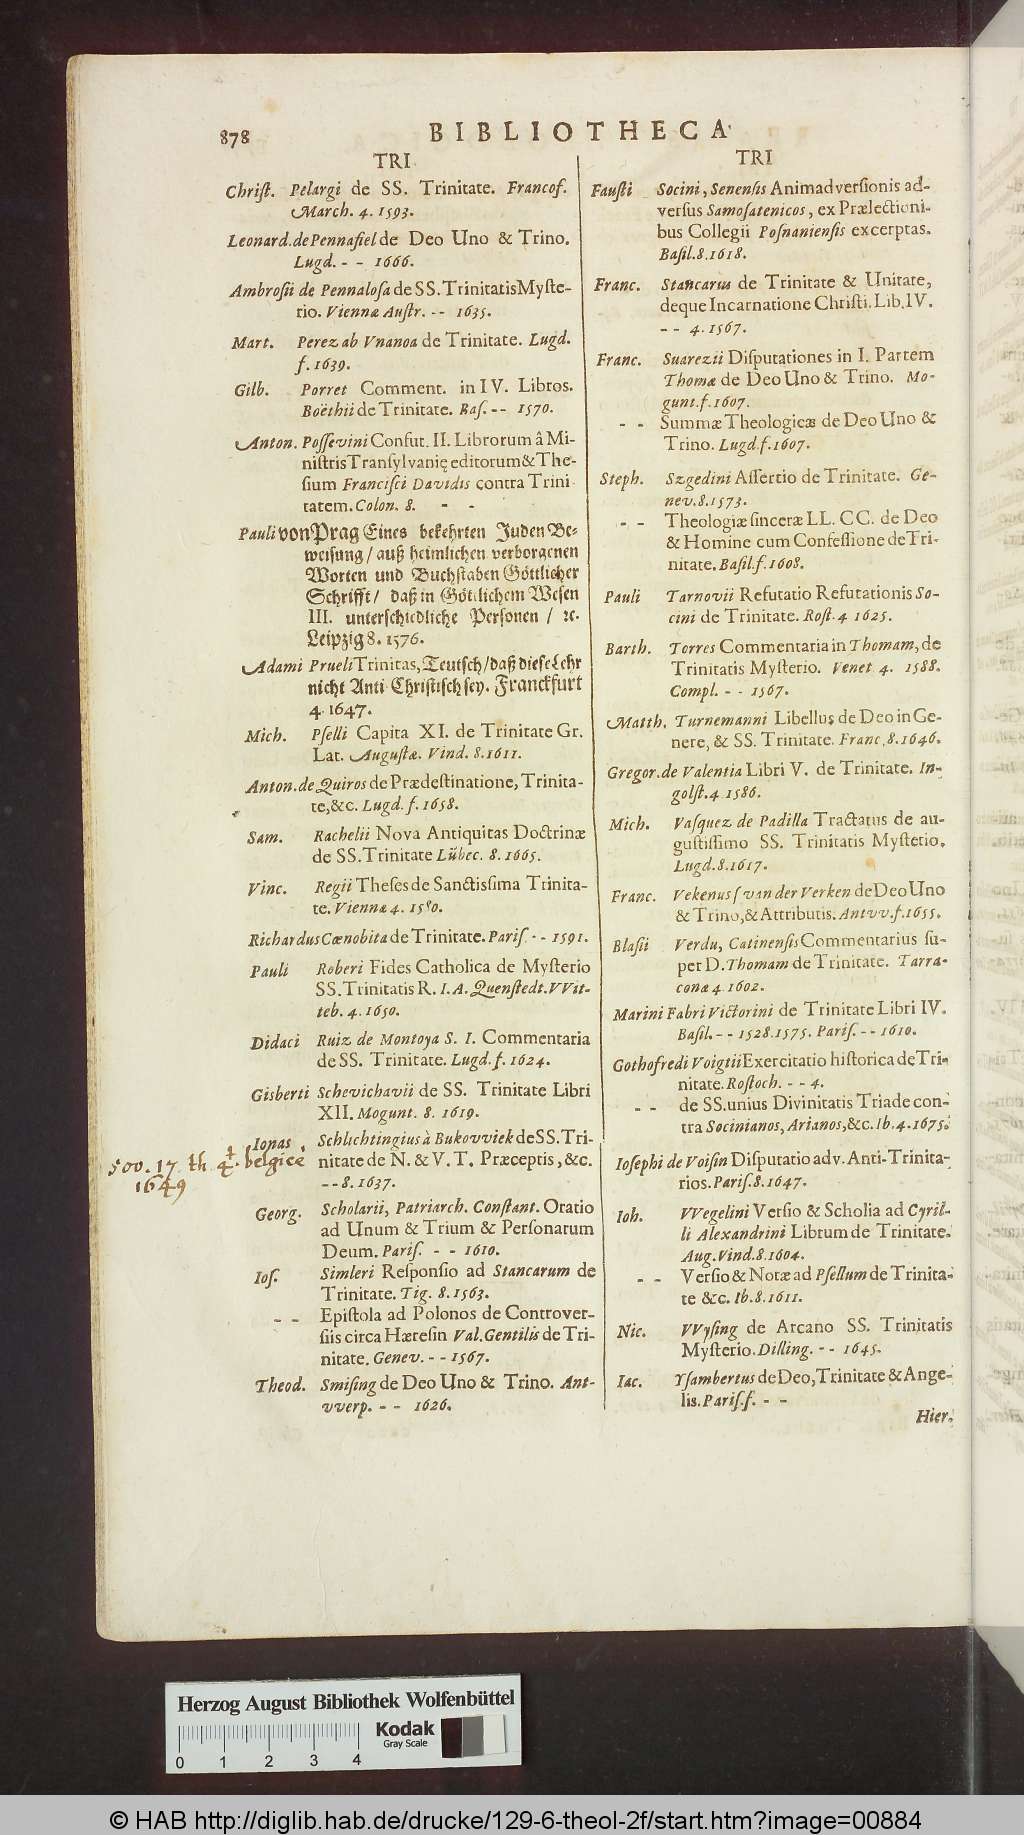 878
BIBLIOTHECA
TRI
Christ. Pelargi de SS. Trinitate. Francof.
March. 4. 1593.
Leonard. de Pennafiel de Deo Uno & Trino.
Lugd. - - 1666.
Ambrosii de Pennalosa de SS. Trinitatis Myste-
rio. Viennæ Austr. -- 1635.
Mart. Perez ab Vnanoa de Trinitate. Lugd.
f. 1639.
Gilb. Porret Comment. in IV. Libros.
Boëthii de Trinitate. Bas. -- 1570.
Anton. Possevini Confut. II. Librorum â Mi-
nistris Transylvanię editorum & The-
sium Francisci Davidis contra Trini
tatem. Colon. 8. - -
Pauli von Prag Eines bekehrten Juden Be-
weisung / auß heimlichen verborgenen
Worten und Buchstaben Göttlicher
Schrifft / daß in Göttlichem Wesen
III. unterschiedliche Personen / ꝛc.
Leipzig 8. 1576.
Adami Prueli Trinitas, Teutsch / daß diese Lehr
nicht Anti Christisch sey. Franckfurt
4. 1647.
Mich. Pselli Capita XI. de Trinitate Gr.
Lat. Augustæ. Vind. 8. 1611.
Anton. de Quiros de Prædestinatione, Trinita-
te, &c. Lugd. f. 1658.
Sam. Rachelii Nova Antiquitas Doctrinæ
de SS. Trinitate Lübec. 8. 1665.
Vinc. Regii Theses de Sanctissima Trinita-
te. Viennæ 4. 1580.
Richardus Cœnobita de Trinitate. Paris. - - 1591.
Pauli Roberi Fides Catholica de Mysterio
SS. Trinitatis R. I. A. Quenstedt. VVit-
teb. 4. 1650.
Didaci Ruiz de Montoya S. I. Commentaria
de SS. Trinitate. Lugd. f. 1624.
Gisberti Schevichavii de SS. Trinitate Libri
XII. Mogunt. 8. 1619.
Ionas Schlichtingius à Bukovviek de SS. Tri-
500. 17. th. 4. belgicè nitate de N. & V. T. Præceptis, &c.
1649 -- 8. 1637.
Georg. Scholarii, Patriarch. Constant. Oratio
ad Unum & Trium & Personarum
Deum. Paris. - - 1610.
Ios. Simleri Responsio ad Stancarum de
Trinitate. Tig. 8. 1563.
- - Epistola ad Polonos de Controver-
siis circa Hæresin Val. Gentilis de Tri-
nitate. Genev. -- 1567.
Theod. Smising de Deo Uno & Trino. Ant-
vverp. -- 1626.
TRI
Fausti Socini, Senensis Animadversionis ad-
versus Samosatenicos, ex Prælectioni-
bus Collegii Posnaniensis excerptas.
Basil. 8. 1618.
Franc. Stancarus de Trinitate & Unitate,
deque Incarnatione Christi. Lib. IV.
-- 4. 1567.
Franc. Suarezii Disputationes in I. Partem
Thomæ de Deo Uno & Trino. Mo-
gunt. f. 1607.
- - Summæ Theologicæ de Deo Uno &
Trino. Lugd. f. 1607.
Steph. Szgedini Assertio de Trinitate. Ge-
nev. 8. 1573.
- - Theologiæ sinceræ LL. CC. de Deo
& Homine cum Confessione de Tri-
nitate. Basil. f. 1608.
Pauli Tarnovii Refutatio Refutationis So-
cini de Trinitate. Rost. 4 1625.
Barth. Torres Commentaria in Thomam, de
Trinitatis Mysterio. Venet 4. 1588.
Compl. - - 1567.
Matth. Turnemanni Libellus de Deo in Ge-
nere, & SS. Trinitate. Franc. 8. 1646.
Gregor. de Valentia Libri V. de Trinitate. In-
golst. 4 1586.
Mich. Vasquez de Padilla Tractatus de au-
gustissimo SS. Trinitatis Mysterio.
Lugd. 8. 1617.
Franc. Vekenus / van der Verken de Deo Uno
& Trino, & Attributis. Antvv. f. 1655.
Blasii Verdu, Catinensis Commentarius su-
per D. Thomam de Trinitate. Tarra-
conæ 4. 1602.
Marini Fabri Victorini de Trinitate Libri IV.
Basil. -- 1528. 1575. Paris. -- 1610.
Gothofredi Voigtii Exercitatio historica de Tri-
nitate. Rostoch. - - 4.
- - de SS. unius Divinitatis Triade con-
tra Socinianos, Arianos, &c. Ib. 4. 1675.
Iosephi de Voisin Disputatio adv. Anti-Trinita-
rios. Paris. 8. 1647.
Ioh. VVegelini Versio & Scholia ad Cyril-
li Alexandrini Librum de Trinitate.
Aug. Vind. 8. 1604.
- - Versio & Notæ ad Psellum de Trinita-
te &c. Ib. 8. 1611.
Nic. VVysing de Arcano SS. Trinitatis
Mysterio. Dilling. -- 1645.
Iac. Ysambertus de Deo, Trinitate & Ange-
lis. Paris. f. - -
Hier.
Herzog August Bibliothek Wolfenbüttel
Kodak
Gray Scale
0 1 2 3 4
© HAB http://diglib.hab.de/drucke/129-6-theol-2f/start.htm?image=00884